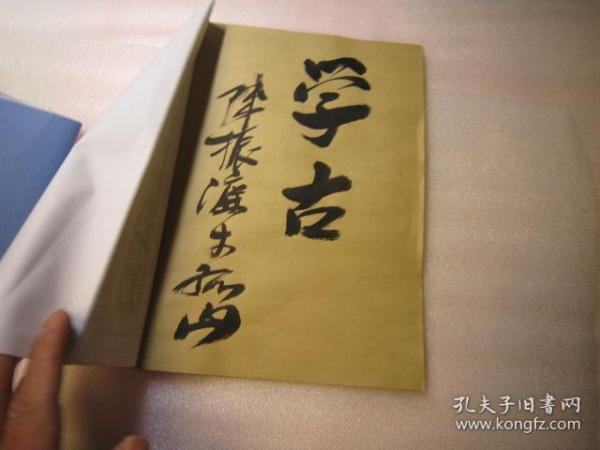 学古
陈振濂于孤山
孔夫子旧書网
www.kongfz.com